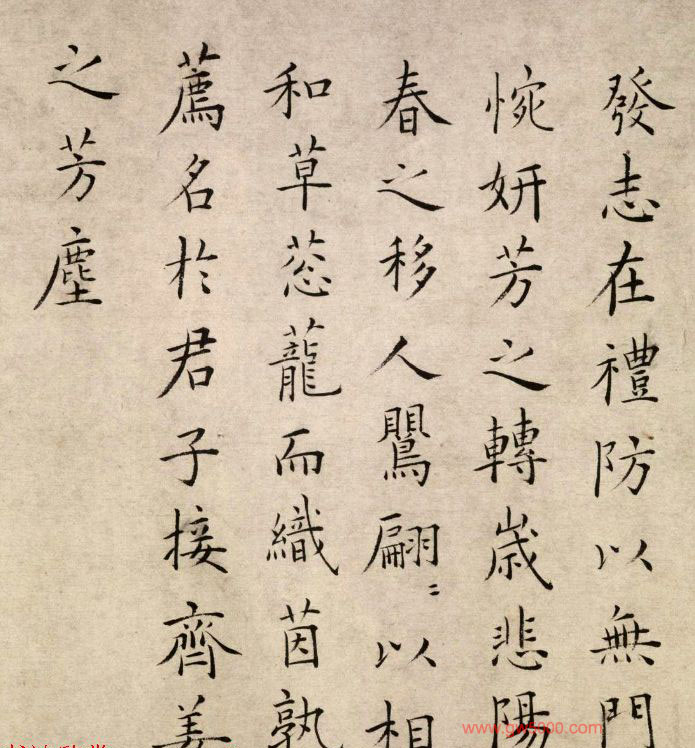 發志在禮防以無門
惋妍芳之轉歲悲陽
春之移人鸎翩〻以相
和草蔥蘢而織茵孰
薦名於君子接齊姜
之芳塵
www.gw5000.com